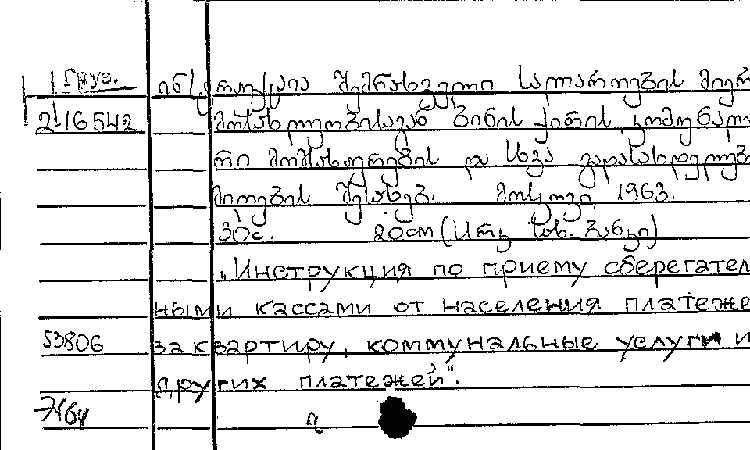 Груз. ინსტრუქცია შემნახველი სალაროების მიერ
2116542 მოსახლეობისაგან ბინის ქირის, კომუნალუ
რი მომსახურების და სხვა გადასახდელებ
მიღების შესახებ. მოსკოვი, 1963.
30с. 200
„Инструкция по приему сберегатель
ными кассами от населения платеже
53806 за квартиру, коммунальные услуги и
других платежей".